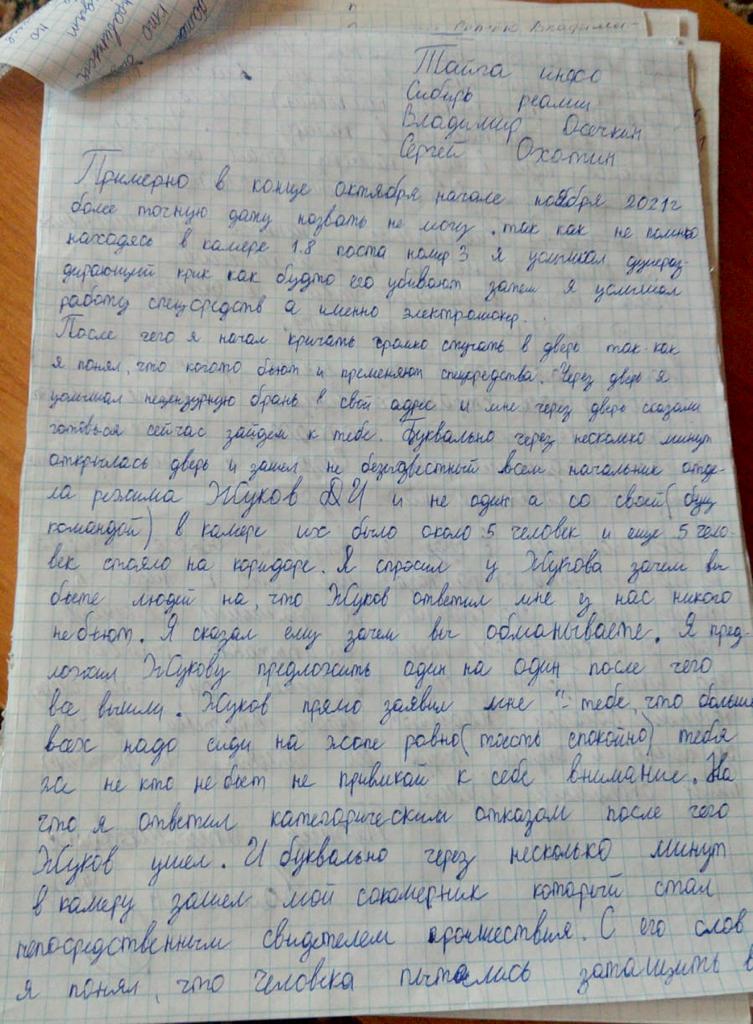 Тайга инфо
Сибирь реалии
Владимир Осечкин
Сергей Охотин
Примерно в конце октября начале ноября 2021г
более точную дату назвать не могу. так как не помню
находясь в камере 1.8 поста номер 3 я услышал душераз-
дирающий крик как будто его убивают затем я услышал
работу спецсредств а именно электрошокер.
После чего я начал кричать громко стучать в дверь так как
я понял, что когото бьют и применяют спецсредства. Через дверь я
услышал нецензурную брань в свой адрес и мне через дверь сказали
готовься сейчас зайдем к тебе. Буквально через несколько минут
открылась дверь и зашел не безызвестный всем начальник отде-
ла режима Жуков Д И и не один а со своей (
командой) в камере их было около 5 человек и еще 5 чело-
век стояло на коридоре. Я спросил у Жукова зачем вы
бьете людей на, что Жуков ответил мне у нас никого
небьют. Я сказал ему зачем вы обманываете. Я пред-
ложил Жукову предложить один на один после чего
все вышли. Жуков прямо заявил мне "- тебе, что больше
всех надо сиди на жопе ровно (тоесть спокойно) тебя
же не кто небьет не привикай к себе внимание. На
что я ответил категорическим отказом после чего
Жуков ушел. И буквально через несколько минут
в камеру зашел мой сокамерник который стал
непосредственным свидетелем происшествия. С его слов
я понял, что человека пытались затащить в